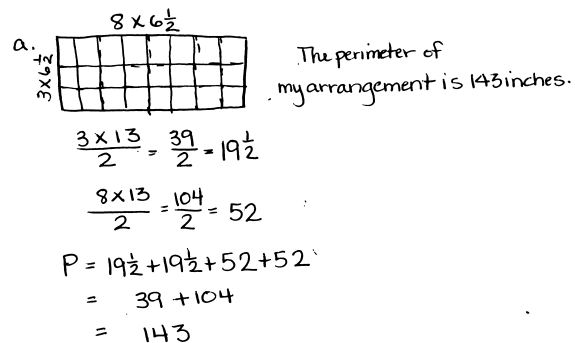 a. 8 × 6 1/2
3 × 6 1/2
The perimeter of
my arrangement is 143 inches.
3 × 13 / 2 = 39/2 = 19 1/2
8 × 13 / 2 = 104/2 = 52
P = 19 1/2 + 19 1/2 + 52 + 52
= 39 + 104
= 143